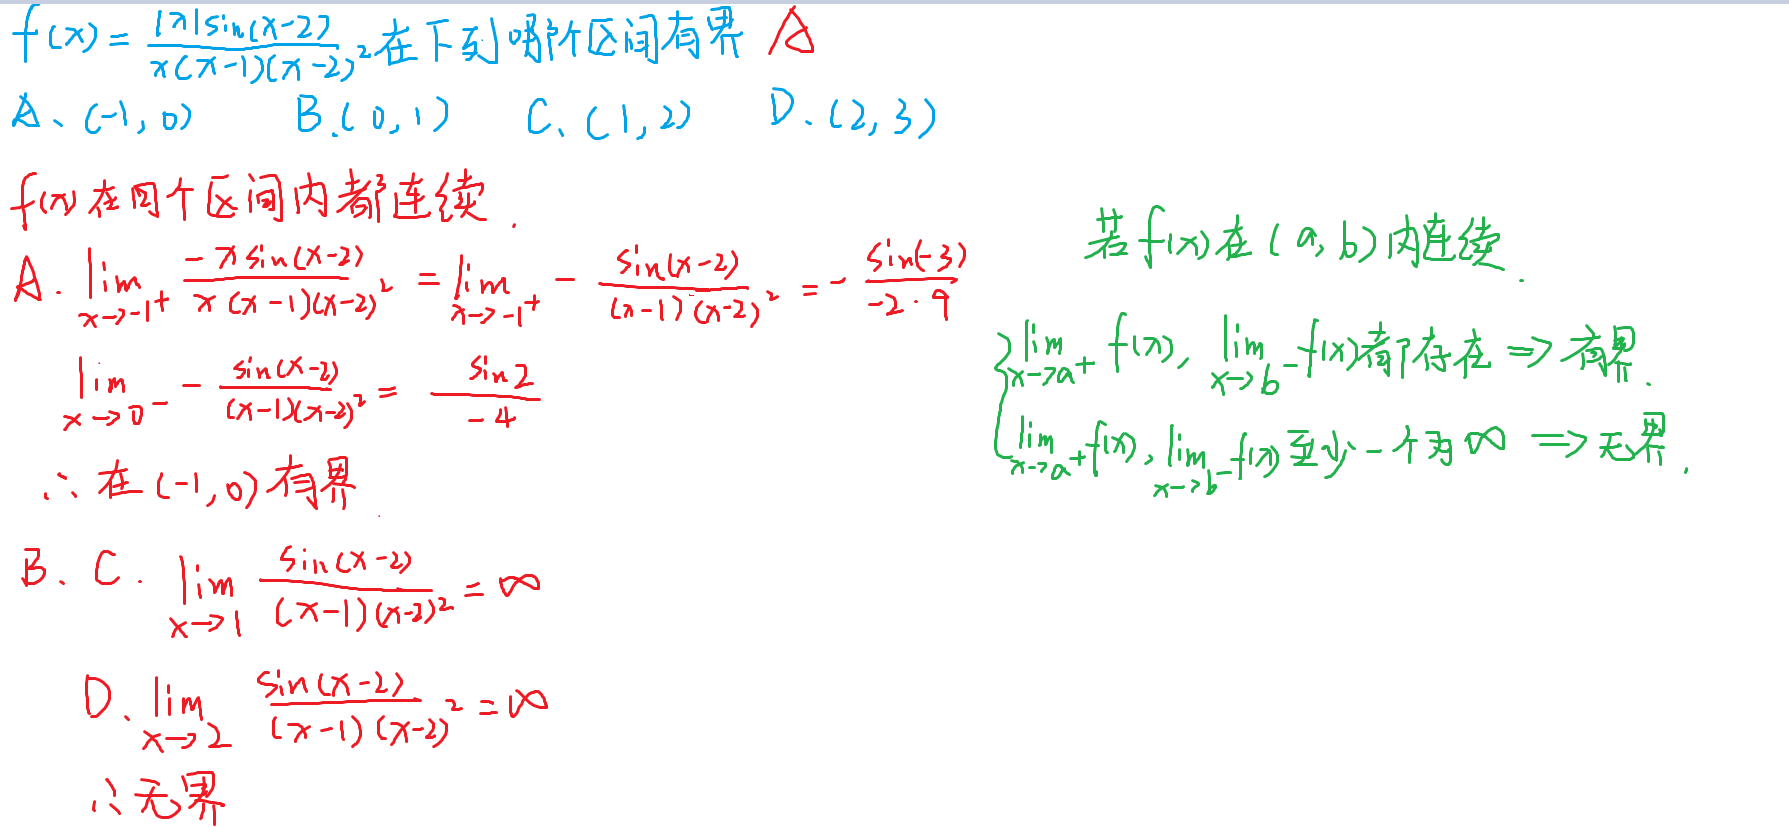 f(x) = |x|sin(x-2) / x(x-1)(x-2)² 在下列哪个区间有界 A
A、(-1, 0) B.(0, 1) C、(1, 2) D、(2, 3)
f(x)在四个区间内都连续.
A. lim x→-1⁺ -x sin(x-2) / x(x-1)(x-2)² = lim x→-1⁺ - sin(x-2) / (x-1)(x-2)² = - sin(-3) / -2·9
lim x→0⁻ - sin(x-2) / (x-1)(x-2)² = sin2 / -4
∴在(-1, 0)有界
B、C. lim x→1 sin(x-2) / (x-1)(x-2)² = ∞
D、lim x→2 sin(x-2) / (x-1)(x-2)² = ∞
∴无界
若f(x)在(a, b)内连续.
{ lim x→a⁺ f(x), lim x→b⁻ f(x)都存在 ⇒ 有界.
lim x→a⁺ f(x), lim x→b⁻ f(x)至少一个为∞ ⇒ 无界.